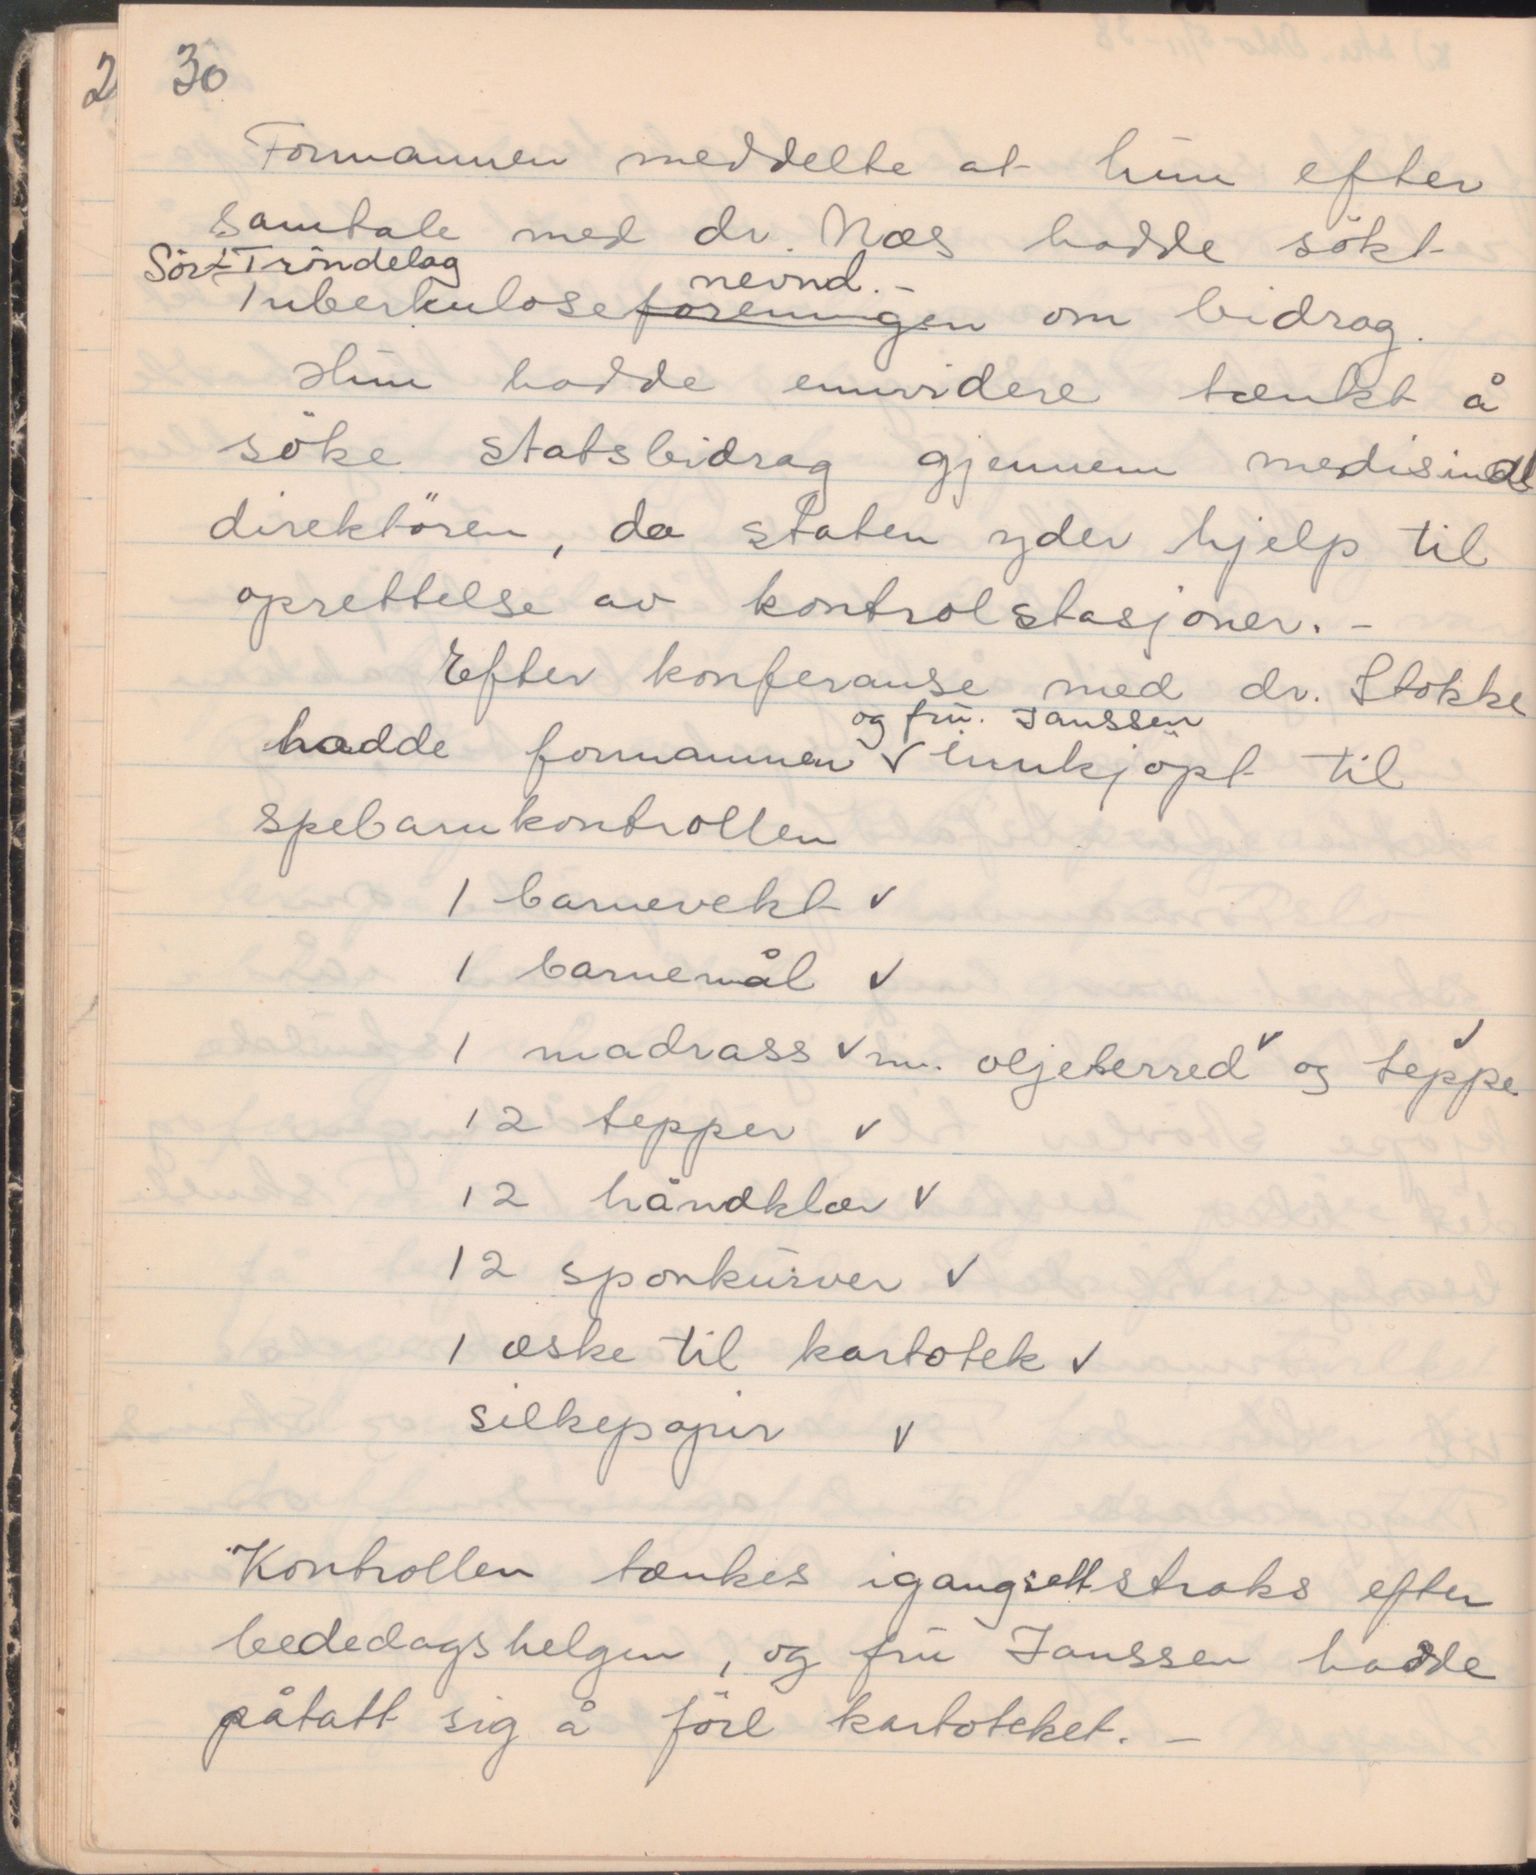 30
Formannen meddelte at hun efter
samtale med dr. Næs hadde søkt
Sör-Tröndelag nevnd. -
Tuberkuloseforeningen om bidrag.
Hun hadde ennvidere tænkt å
söke statsbidrag gjennem medisinal
direktören, da staten yder hjelp til
oprettelse av kontrolstasjoner. -
Efter konferanse med dr. Stokke
og fru. Janssen
hadde formannen ✓ innkjöpt til
spebarnkontrollen
1 barnevekt ✓
1 barnemål ✓
1 madrass ✓ m. oljeterred ✓ og teppe ✓
12 tepper ✓
12 håndklær ✓
12 sponkurver ✓
1 æske til kartotek ✓
silkepapir ✓
Kontrollen tænkes igangsatt straks efter
bededagshelgen, og fru Janssen hadde
påtatt sig å före kartoteket. -